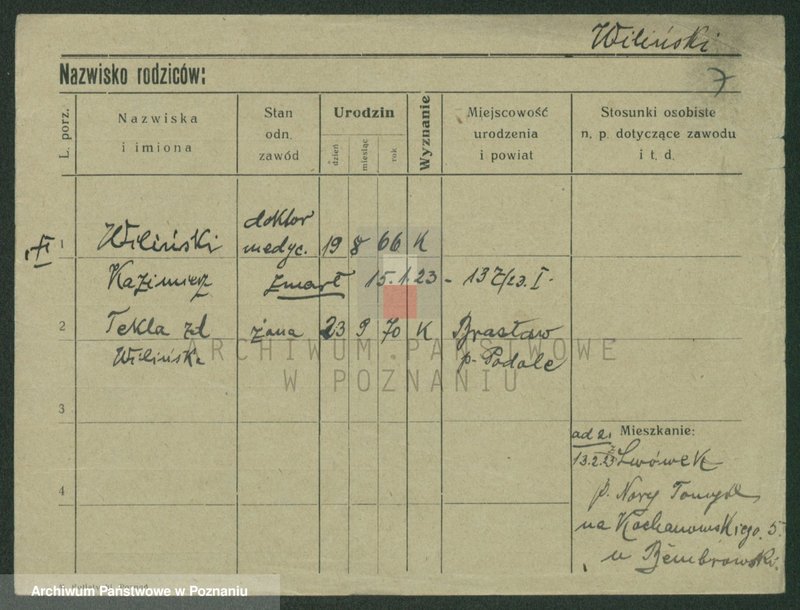 Wiliński
7
Nazwisko rodziców:
L. porz.
Nazwiska
i imiona
Stan
odn.
zawód
Urodzin
dzień
miesiąc
rok
Wyznanie
Miejscowość
urodzenia
i powiat
Stosunki osobiste
n. p. dotyczące zawodu
i t. d.
1 Wiliński doktor medyc. 19 8 66 K
Kazimierz zmarł 15.1.23 - 137/23. I.
2 Tekla zd żona 23 9 70 K Brasław
Wilińska p. Podole
ARCHIWUM PAŃSTWOWE
W POZNANIU
3
ad 2. Mieszkanie:
13.2.23 Lwówek
4 p. Nowy Tomyśl
na Kochanowskiego 5.
u
Archiwum Państwowe w Poznaniu